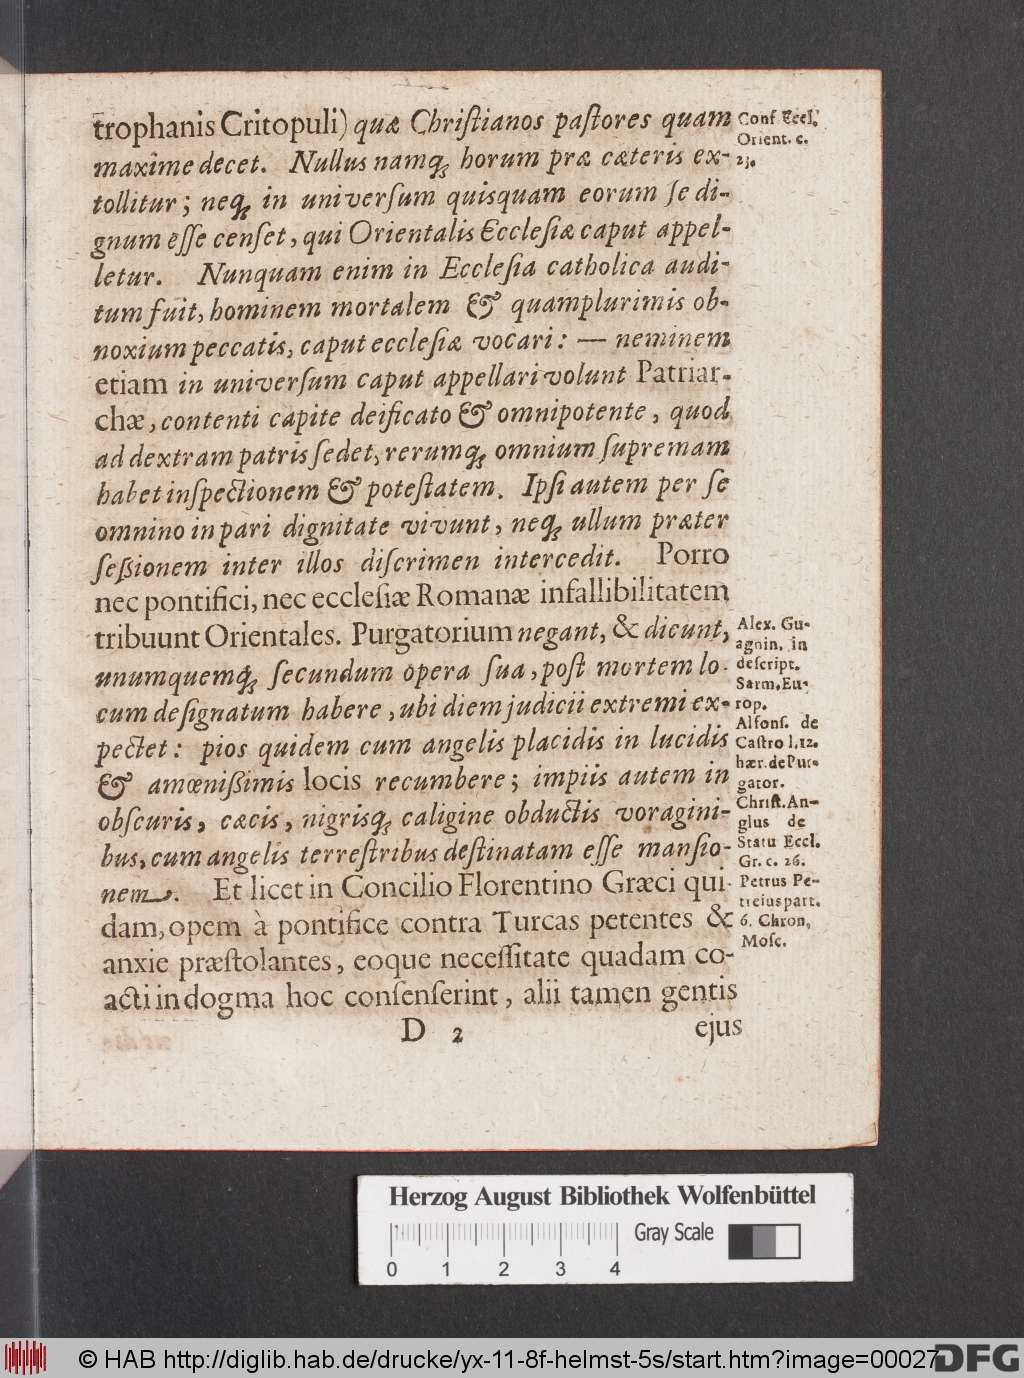 trophanis Critopuli) quæ Chriſtianos paſtores quam
maxime decet. Nullus namq; horum præ cæteris ex-
tollitur; neq; in univerſum quisquam eorum ſe di-
gnum eſſe cenſet, qui Orientalis Eccleſiæ caput appel-
letur. Nunquam enim in Eccleſia catholica audi-
tum fuit, hominem mortalem & quamplurimis ob-
noxium peccatis, caput eccleſiæ vocari: — neminem
etiam in univerſum caput appellari volunt Patriar-
chæ, contenti capite deificato & omnipotente, quod
ad dextram patris ſedet, rerumq; omnium ſupremam
habet inſpectionem & poteſtatem. Ipſi autem per ſe
omnino in pari dignitate vivunt, neq; ullum præter
ſeßionem inter illos diſcrimen intercedit. Porro
nec pontifici, nec eccleſiæ Romanæ infallibilitatem
tribuunt Orientales. Purgatorium negant, & dicunt,
unumquemq; ſecundum opera ſua, poſt mortem lo-
cum deſignatum habere, ubi diem judicii extremi ex-
pectet: pios quidem cum angelis placidis in lucidis
& amœnißimis locis recumbere; impiis autem in
obſcuris, cæcis, nigrisq; caligine obductis voragini-
bus, cum angelis terreſtribus deſtinatam eſſe manſio-
nem. Et licet in Concilio Florentino Græci qui-
dam, opem à pontifice contra Turcas petentes &
anxie præſtolantes, eoque neceſſitate quadam co-
acti in dogma hoc conſenſerint, alii tamen gentis
D 2
ejus
Conf. Eccl.
Orient. c.
23.
Alex. Gu-
agnin. in
deſcript.
Sarm. Eu-
rop.
Alfonſ. de
Caſtro l. 12.
hær. de Pur-
gator.
Chriſt. An-
glus de
Statu Eccl.
Gr. c. 26.
Petrus Pe-
treius part.
6. Chron,
Moſc.
Herzog August Bibliothek Wolfenbüttel
0 1 2 3 4
Gray Scale
© HAB http://diglib.hab.de/drucke/yx-11-8f-helmst-5s/start.htm?image=00027
DFG